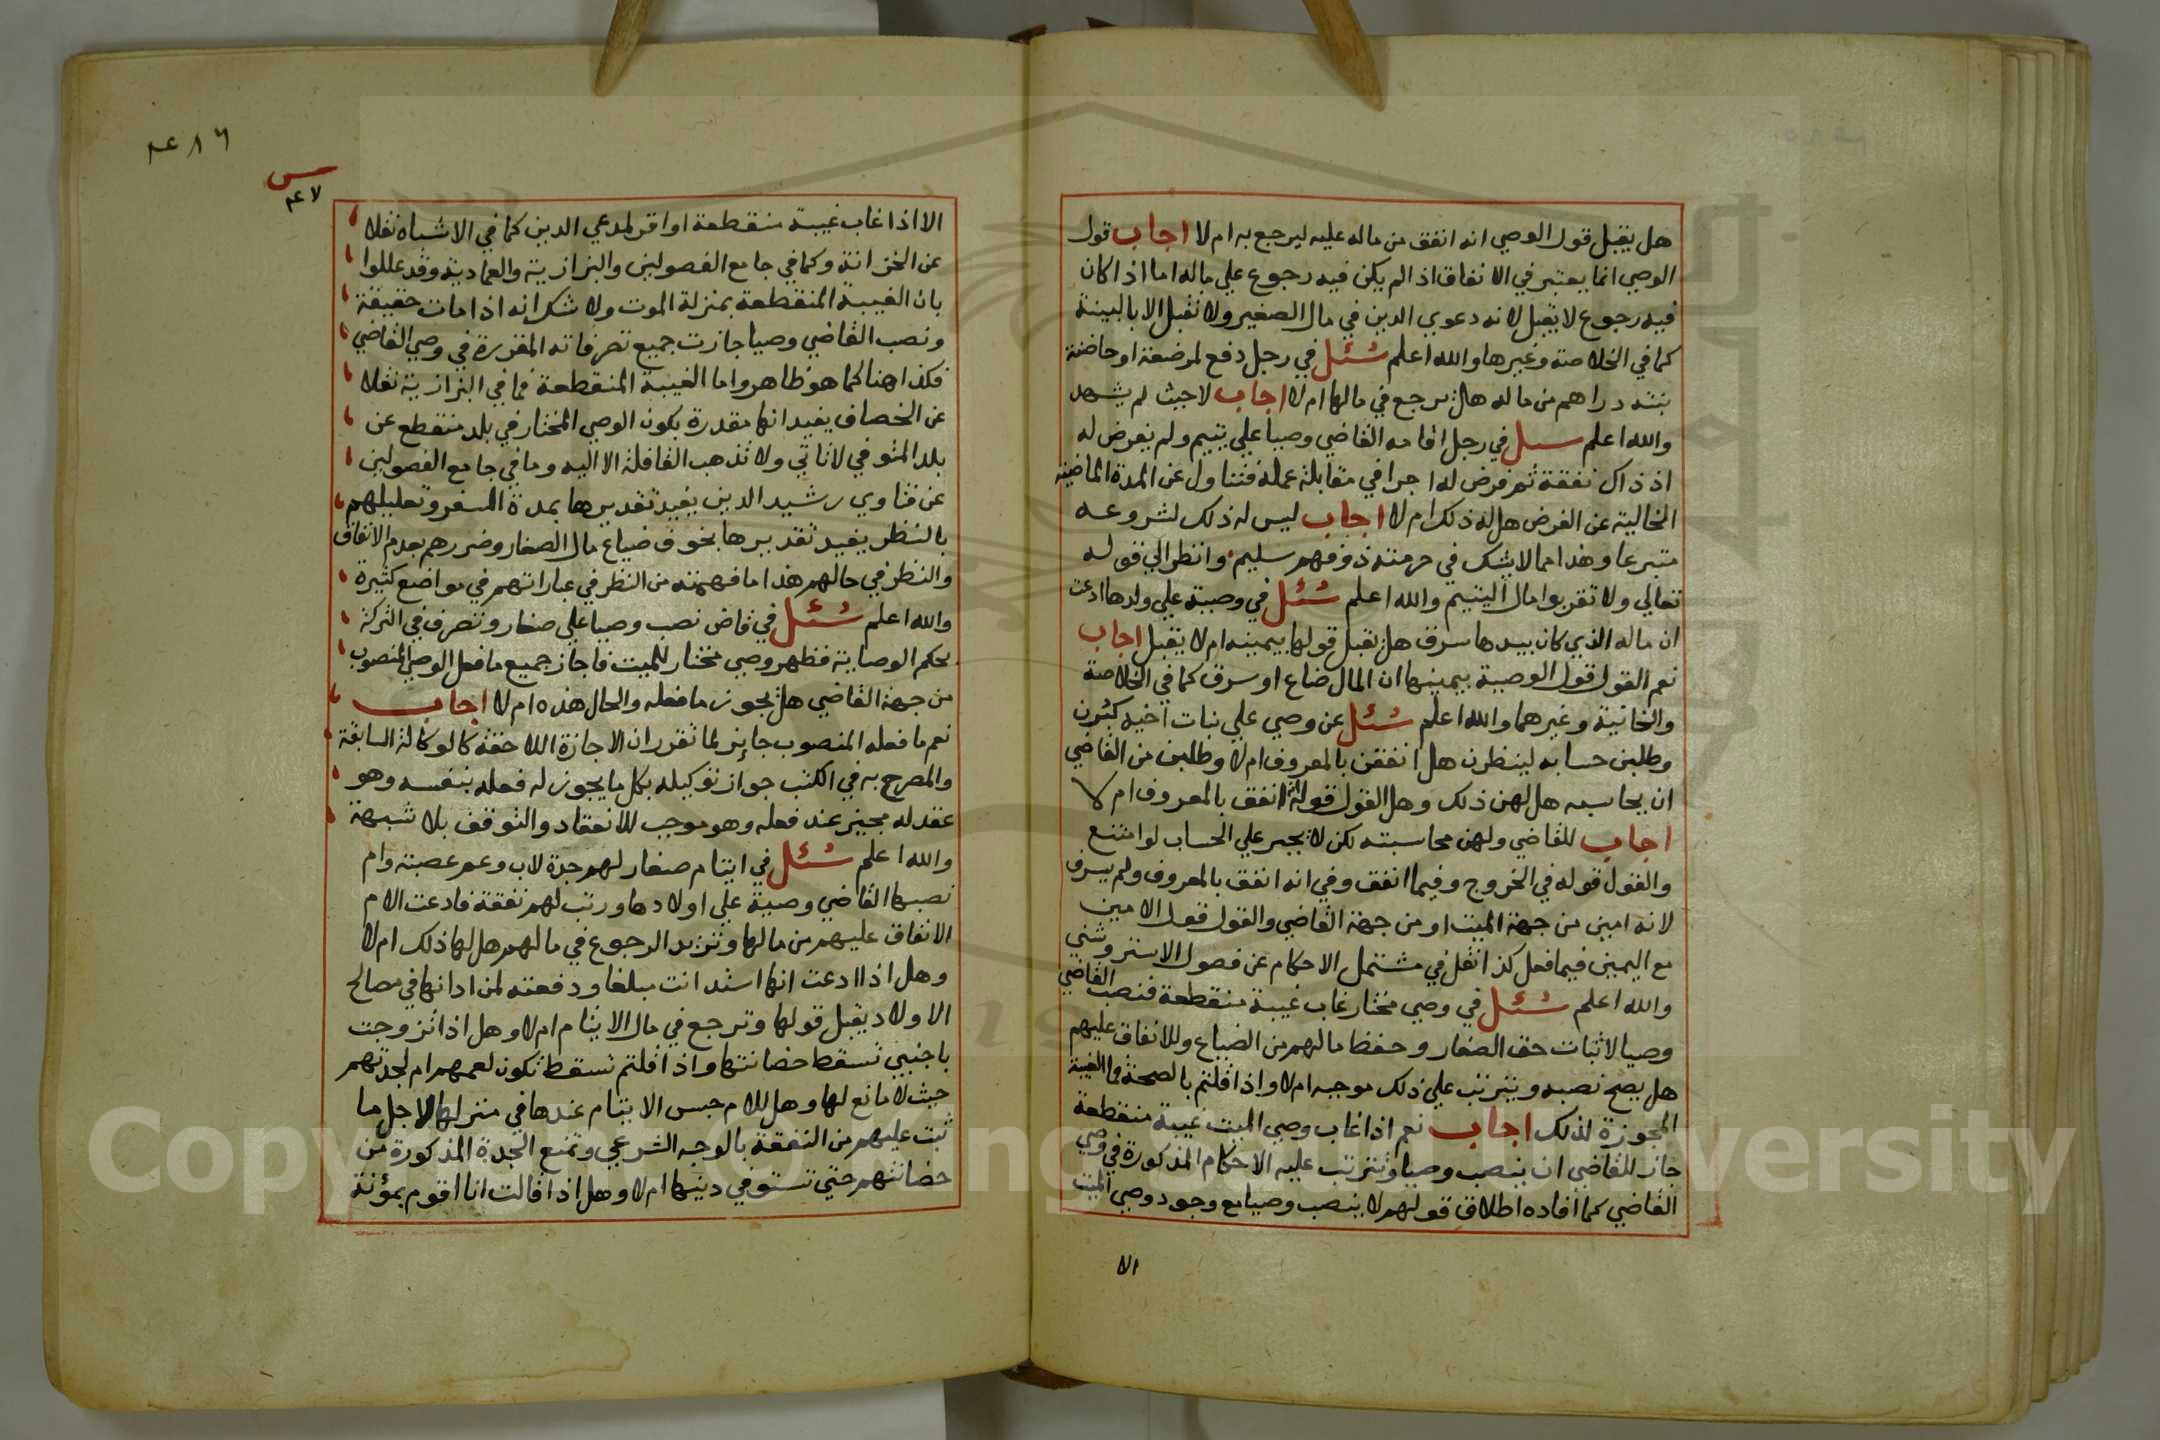 هل يقبل قول الوصي انه انفق من ماله عليه ليرجع به ام لا اجاب قول
الوصي انما يعتبر في الانفاق اذا لم يكن فيه رجوع علي ماله اما اذا كان
فيه رجوع لا يقبل لانه دعوي الدين في مال الصغير ولا تقبل الا بالبينة
كما في الخلاصة وغيرها والله اعلم سئل في رجل دفع لمرضعة او حاضنة
بنته دراهم من ماله هل يرجع في مالها ام لا اجاب لا حيث لم يشهد
والله اعلم سل في رجل اقامه القاضي وصيا علي يتيم ولم يفرض له
اذ ذاك نفقة ثم فرض له اجرا في مقابلة عمله فتناول عن المدة الماضية
الخالية عن الفرض هل له ذلك ام لا اجاب ليس له ذلك لشروعه
متبرعا وهذا مما لا يشك في حرمته ذو فهم سليم وانظر الي قوله
تعالي ولا تقربوا مال اليتيم والله اعلم سئل في وصية علي ولدها ادعت
ان ماله الذي كان بيدها سرق هل تقبل قولها بيمينه ام لا يقبل اجاب
نعم القول قول الوصية بيمينها ان المال ضاع او سرق كما في الخلاصة
والخانية وغيرهما والله اعلم سئل عن وصي علي بنات اخيه كبرن
وطلبن حسابه لينظرن هل انفقن بالمعروف ام لا وطلبن من القاضي
ان يحاسبه هل لهن ذلك وهل القول قوله انفق بالمعروف ام لا
اجاب للقاضي ولهن محاسبته لكن لا يجبر علي الحساب لو امتنع
والقول قوله في الخروج وفيما انفق وفي انه انفق بالمعروف ولم يسرف
لانه امين من جهة الميت او من جهة القاضي والقول قول الامين
مع اليمين فيما فعل كذا نقل في مشتمل الاحكام عن فصول الاستروشني
والله اعلم سئل في وصي مختار غاب غيبة منقطعة فنصب القاضي
وصيا لاثبات حق الصغار وحفظ مالهم من الضياع وللانفاق عليهم
هل يصح نصبه ويترتب علي ذلك موجبه ام لا واذا قلتم بالصحة فما الغيبة
المجوزة لذلك اجاب نعم اذا غاب وصي الميت غيبة منقطعة
جاز للقاضي ان ينصب وصيا وتترتب عليه الاحكام المذكورة في وصي
القاضي كما افاده اطلاق قولهم لا ينصب وصيا مع وجود وصي الميت
الا
٢٤٨٦
س
٢٤٧
الا اذا غاب غيبة منقطعة او اقر لمدعي الدين كما في الاشباه نقلا
عن الخزانة وكما في جامع الفصولين والبزازية والعمادية وقد عللوا
بان الغيبة المنقطعة بمنزلة الموت ولا شك انه اذا مات حقيقة
ونصب القاضي وصيا جازت جميع تصرفاته المقررة في وصي القاضي
فكذا هنا كما هو ظاهر واما الغيبة المنقطعة فما في البزازية نقلا
عن الخصاف يفيد انها مقدرة بكون الوصي المختار في بلد منقطع عن
بلد المتوفي لا تاتي ولا تذهب القافلة الا اليه وما في جامع الفصولين
عن فتاوي رشيد الدين يفيد تقديرها بمدة السفر وتعليلهم
بالنظر يفيد تقديرها بخوف ضياع مال الصغار وضررهم بعدم الانفاق
والنظر في حالهم هذا ما فهمته من النظر في عباراتهم في مواضع كثيرة
والله اعلم سئل في قاض نصب وصيا علي صغار وتصرف في التركة
بحكم الوصاية فظهر وصي مختار للميت فاجاز جميع ما فعل الوصي المنصوب
من جهة القاضي هل يجوز ما فعله والحال هذه ام لا اجاب
نعم ما فعله المنصوب جايز لما تقرر ان الاجازة اللاحقة كالوكالة السابقة
والمصرح به في الكتب جواز توكيله بكل ما يجوز له فعله بنفسه وهو
عقد له مجيز عند فعله وهو موجب للانعقاد والتوقف بلا شبهة
والله اعلم سئل في ايتام صغار لهم جدة لاب وعم عصبته وام
نصبها القاضي وصية علي اولادها ورتب لهم نفقة فادعت الام
الانفاق عليهم من مالها وتريد الرجوع في مالهم هل لها ذلك ام لا
وهل اذا ادعت انها استدانت مبلغا ودفعته لمن ادانها في مصالح
الاولاد يقبل قولها وترجع في مال الايتام ام لا وهل اذا تزوجت
باجنبي تسقط حضانتها واذا قلتم تسقط تكون لعمهم ام لجدتهم
حيث لا مانع لها وهل للام حبس الايتام عندها في منزلها لاجل ما
ثبت عليهم من النفقة بالوجه الشرعي وتمنع الجدة المذكورة من
حضانتهم حتي تستوفي دينها ام لا وهل اذا قالت انا اقوم بمؤنة
Copyright © King Saud University